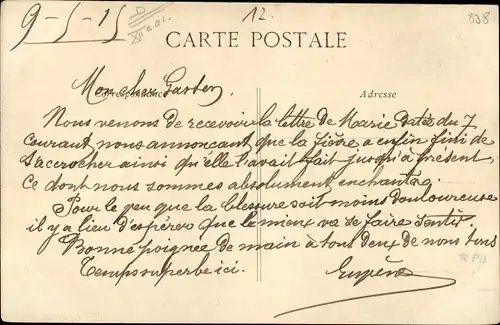 9-5-15
12.
838
CARTE POSTALE
Correspondance
Adresse
Mon cher Gaston,
Nous venons de recevoir la lettre de Marie datée du 7
courant, nous annoncant que la fièvre a enfin fini de
s'accrocher ainsi qu'elle l'avait fait jusqu'à présent,
ce dont nous sommes absolument enchantés.
Pour le peu que la blessure soit moins douloureuse
il y a lieu d'espérer que le mieux va se faire sentir.
Bonne poignée de main à tous deux de nous tous
Temps superbe ici.
Eugène